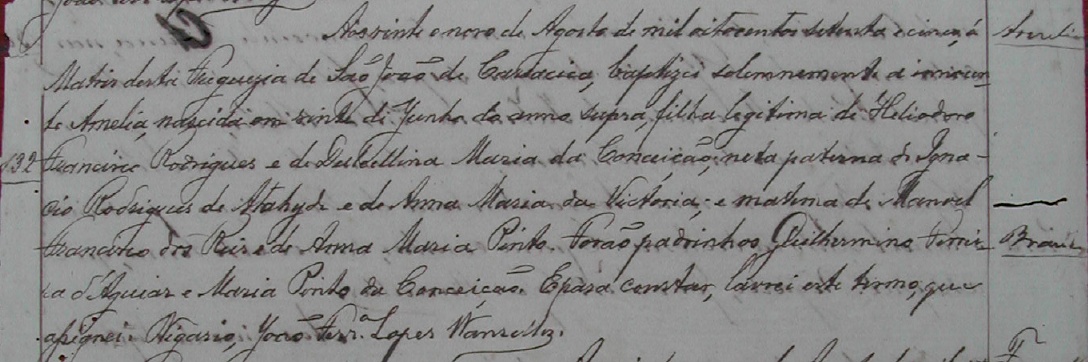 Aos vinte e nove de Agosto de mil oitocentos setenta e cinco, á
Matriz desta Freguezia de São João de Cariacica, baptizei solemnemente a innocen-
te Amelia, nascida em vinte de Junho do anno supra, filha legitima de Heliodoro
132 Francisco Rodrigues e de Maria da Conceição, neta paterna de Igna-
cio Rodrigues de Atahyde e de Anna Maria da Victoria; e materna de Manoel
Francisco dos Reis e de Anna Maria Pinto. Forão padrinhos Guilhermino Ferrei-
ra d'Aguiar e Maria Pinto da Conceição. E para constar, lavrei este termo, que
assignei. Vigario, João Ferr.ª Lopes Wanzeller.